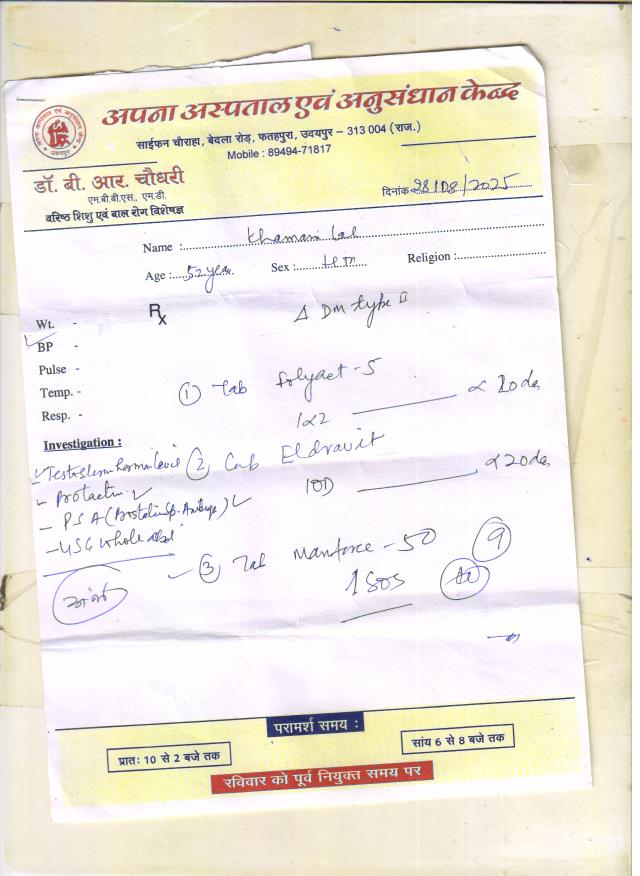 अपना अस्पताल एवं अनुसंधान केन्द्र
साईफन चौराहा, बेदला रोड़, फतहपुरा, उदयपुर – 313 004 (राज.)
Mobile : 89494-71817
डॉ. बी. आर. चौधरी
एम.बी.बी.एस., एम.डी.
वरिष्ठ शिशु एवं बाल रोग विशेषज्ञ
दिनांक 28/08/2025
Name : Khamani Lal
Age : 52 year Sex : Religion :
Rx
Δ DM type II
Wt. -
BP -
Pulse -
Temp. -
Resp. -
① Tab folyact - 5
1x2 x 20 da
Investigation :
- Testosterone hormone level
② Cap Eldravit
1OD x 20 da
- Prolactin
- PSA (Prostatic Sp. Antige)
- USG whole abd
③ Tab Manforce - 50
1 SOS
परामर्श समय :
प्रातः 10 से 2 बजे तक
सांय 6 से 8 बजे तक
रविवार को पूर्व नियुक्त समय पर